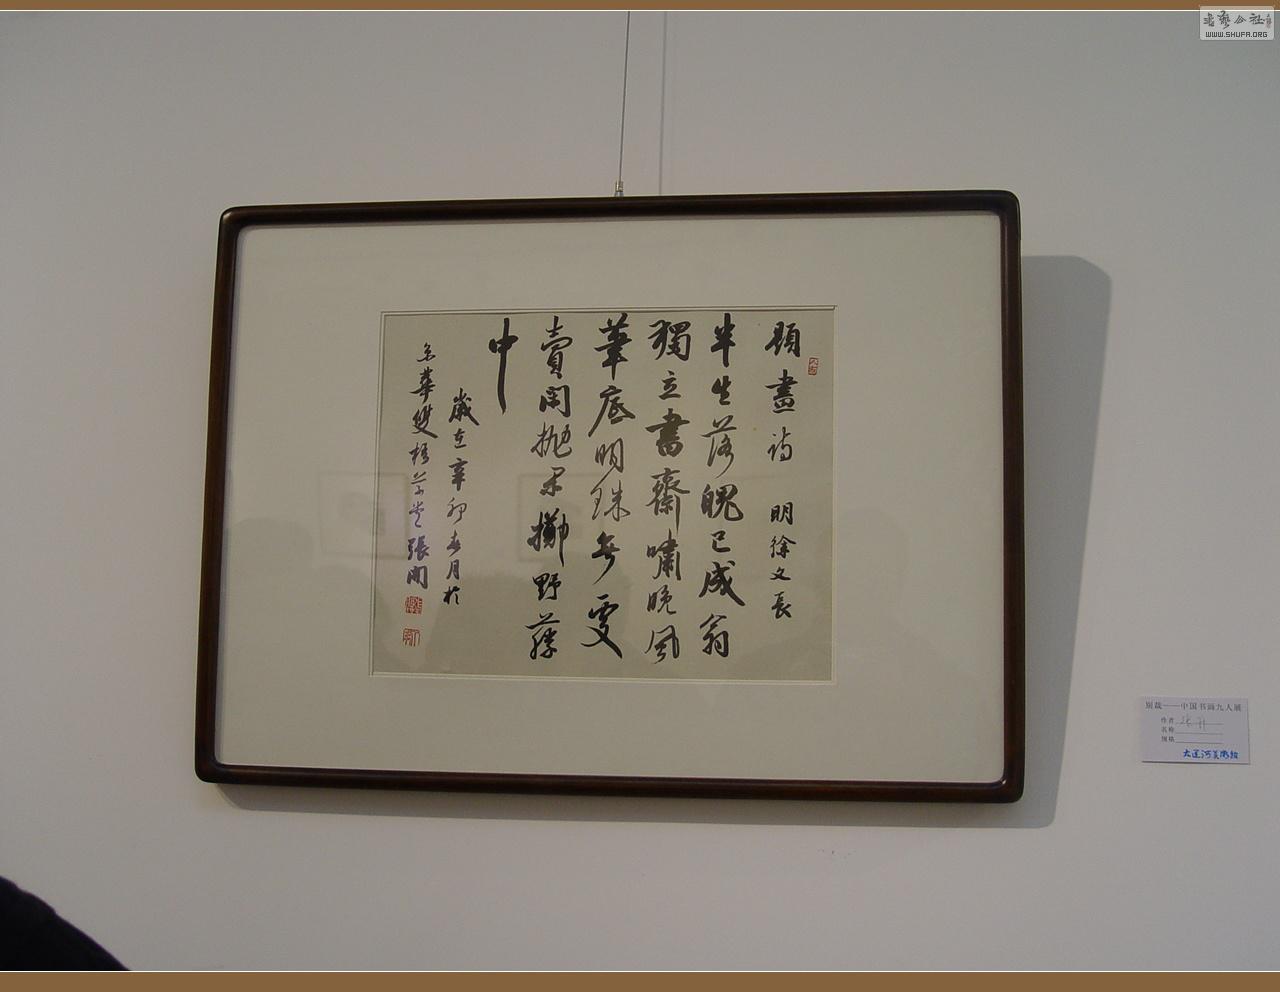 題畫詩 明徐文長
半生落魄已成翁
獨立書齋嘯晚風
筆底明珠無處
賣閑拋閑擲野藤
中
歲在辛卯春月於
京華雙梧草堂張開
WWW.SHUFA.ORG
别裁——中国书画九人展
作者
名称
规格
大运河美术馆